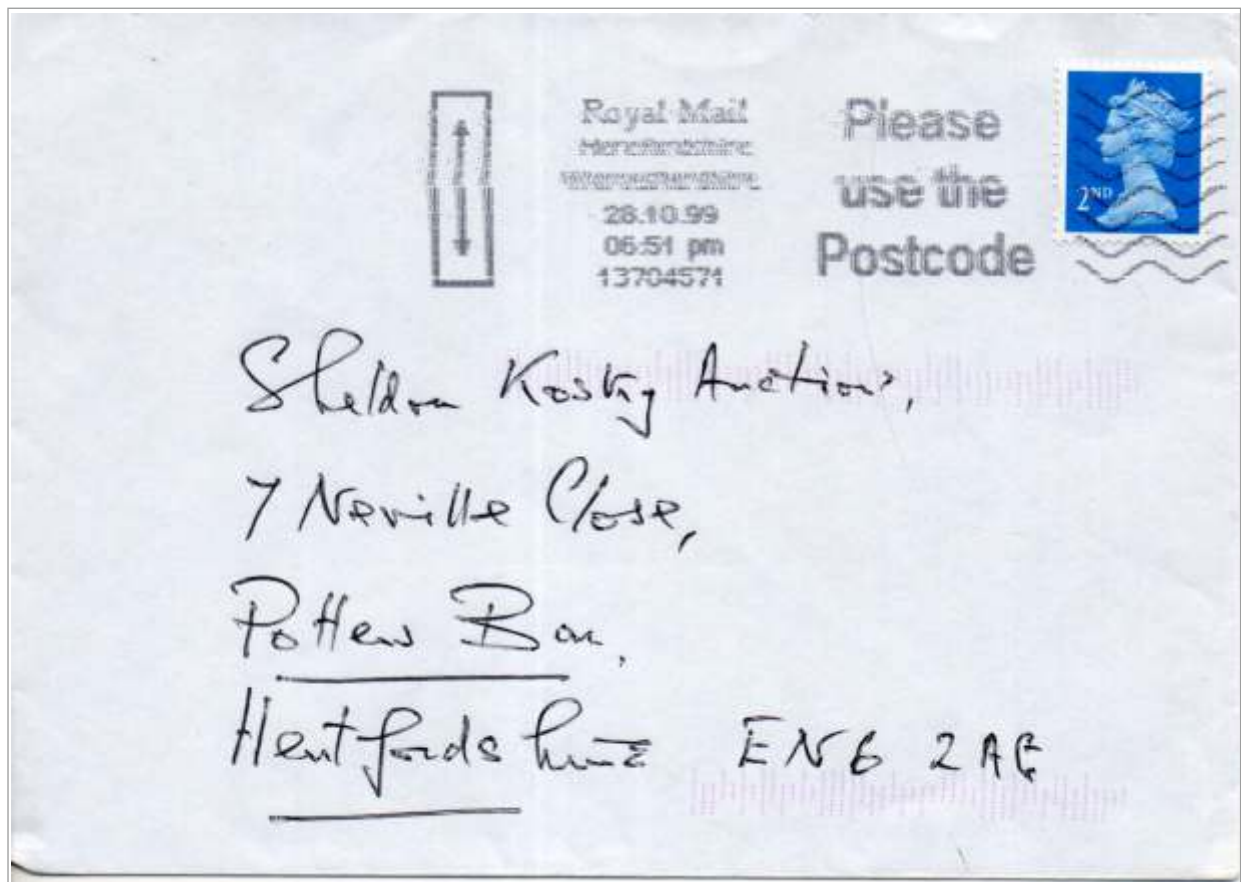 Royal Mail
Herefordshire
Worcestershire
28.10.99
06:51 pm
13704571
Please
use the
Postcode
2ND
Sheldon Kosky Auctions,
7 Neville Close,
Potters Bar,
Hertfordshire EN6 2AG